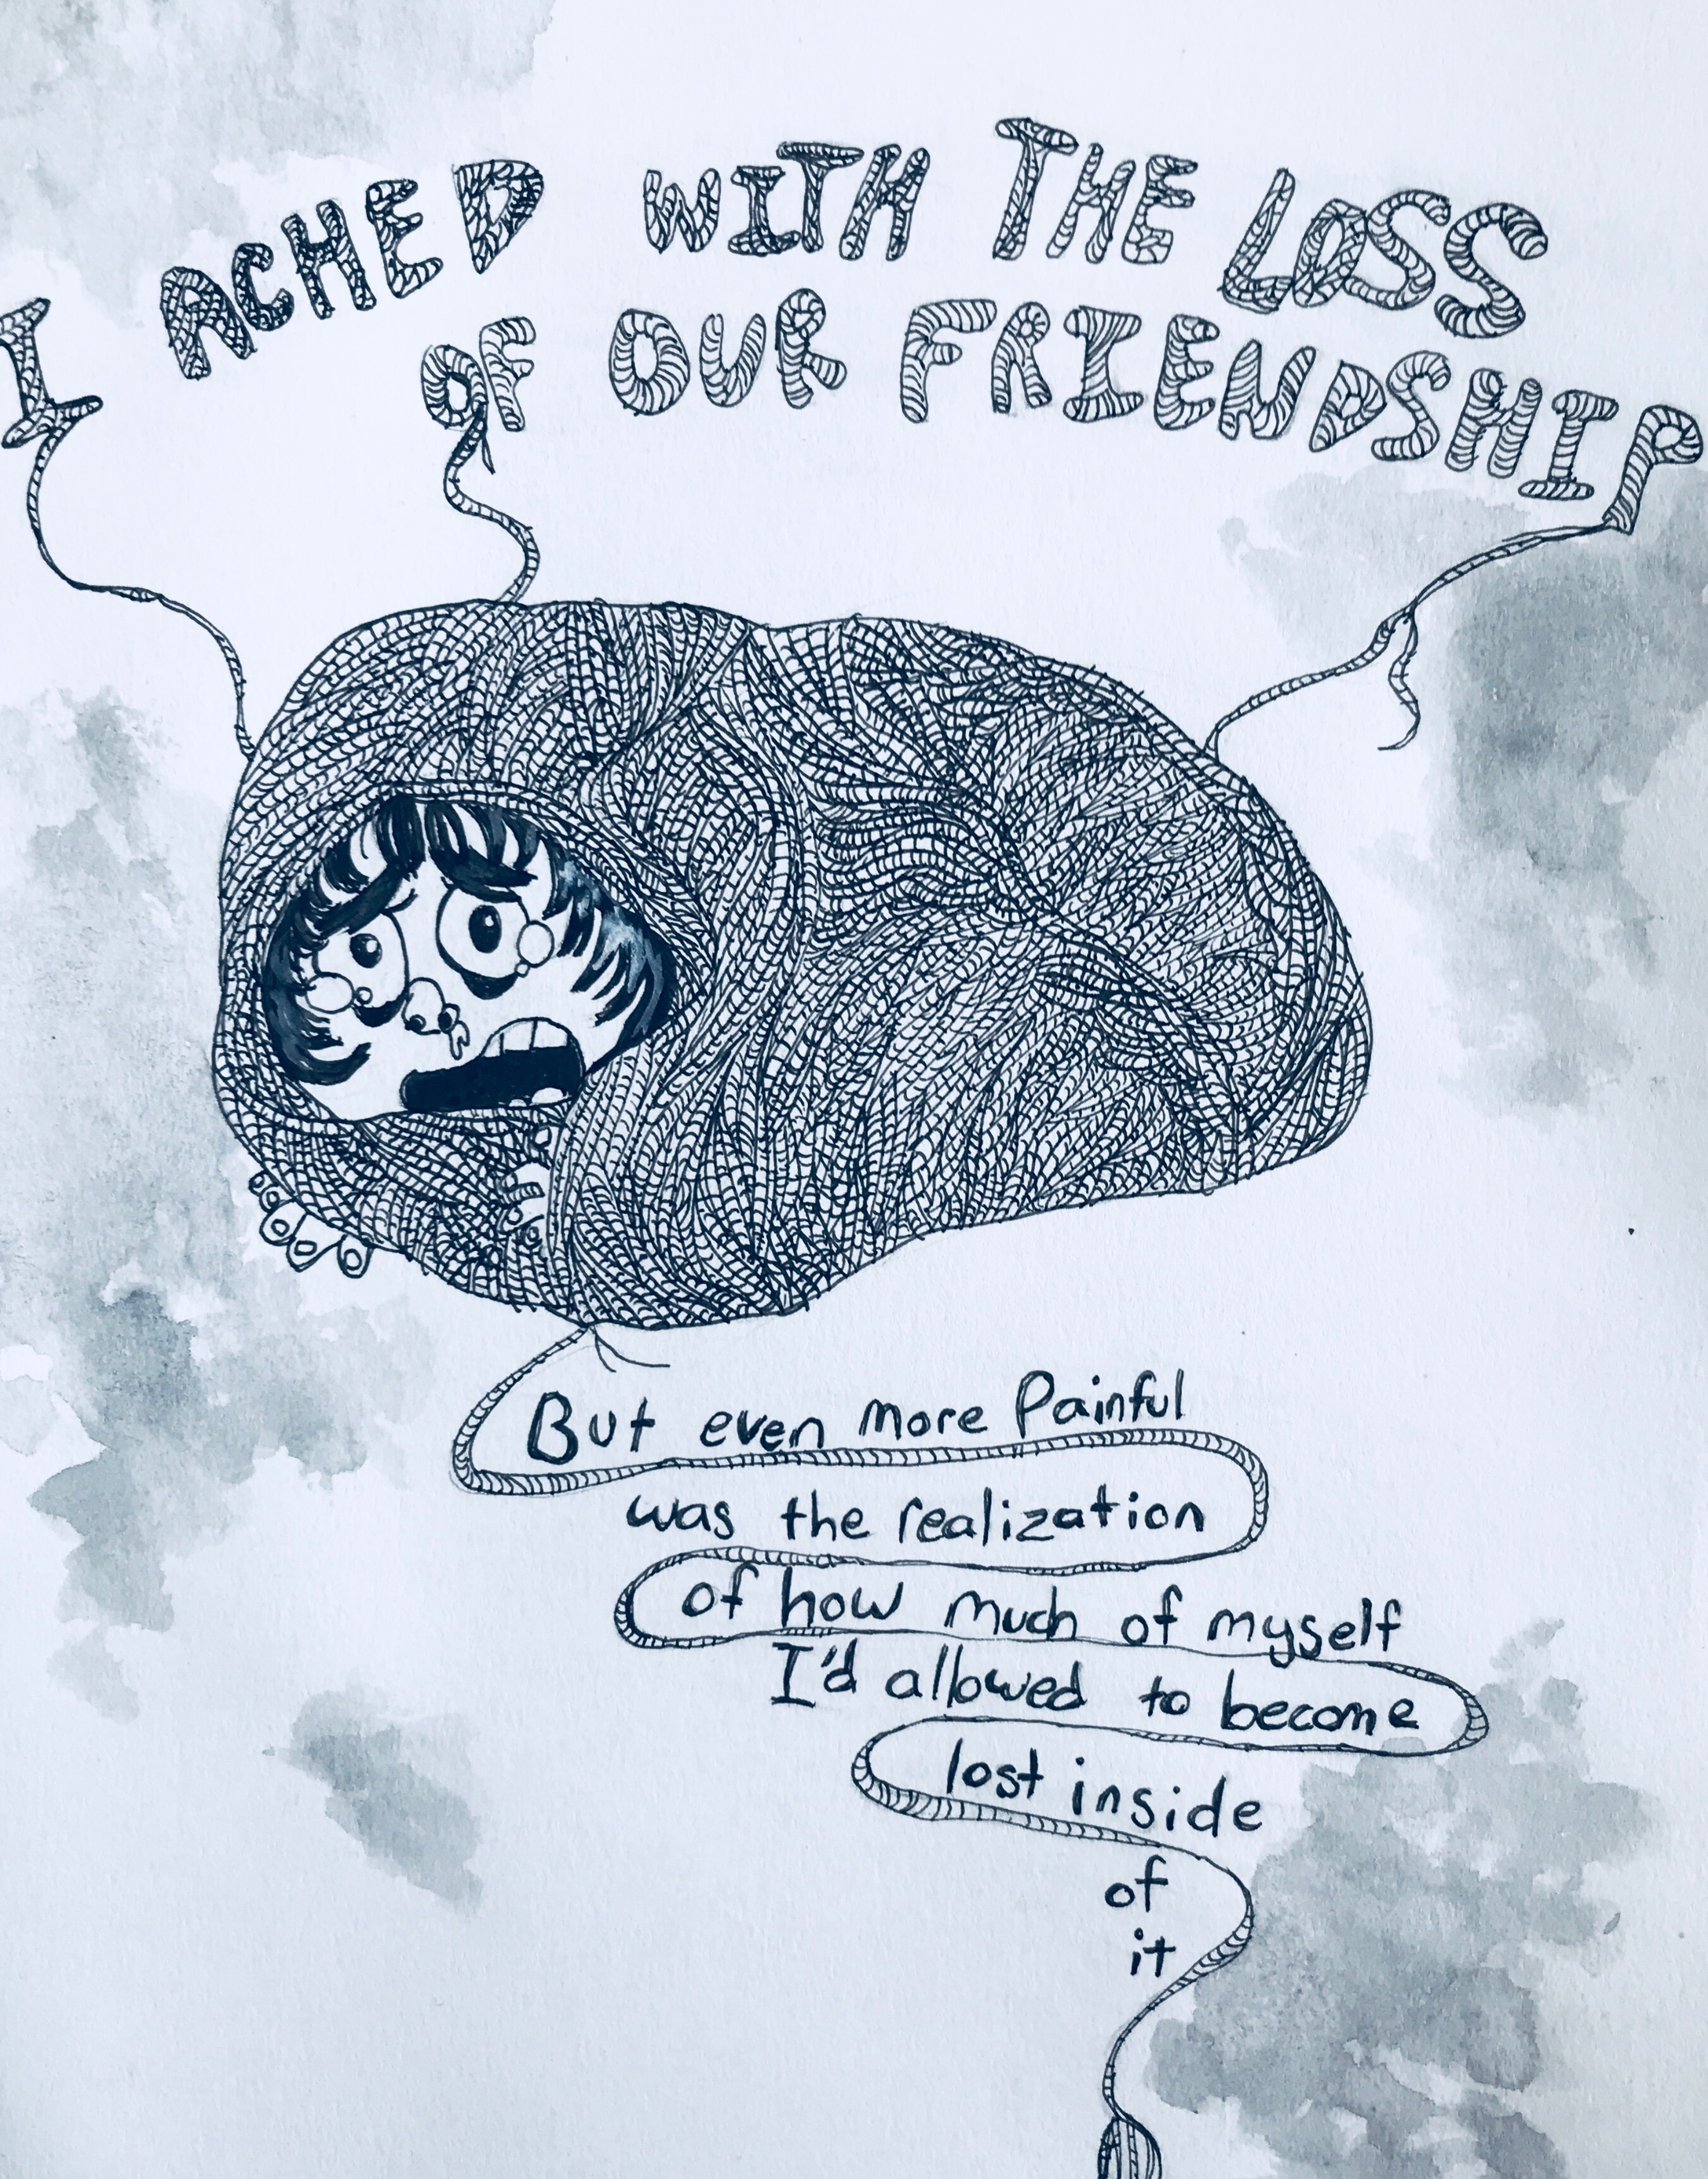 I ACHED WITH THE LOSS
OF OUR FRIENDSHIP
But even more Painful
was the realization
of how much of myself
I'd allowed to become
lost inside
of
it